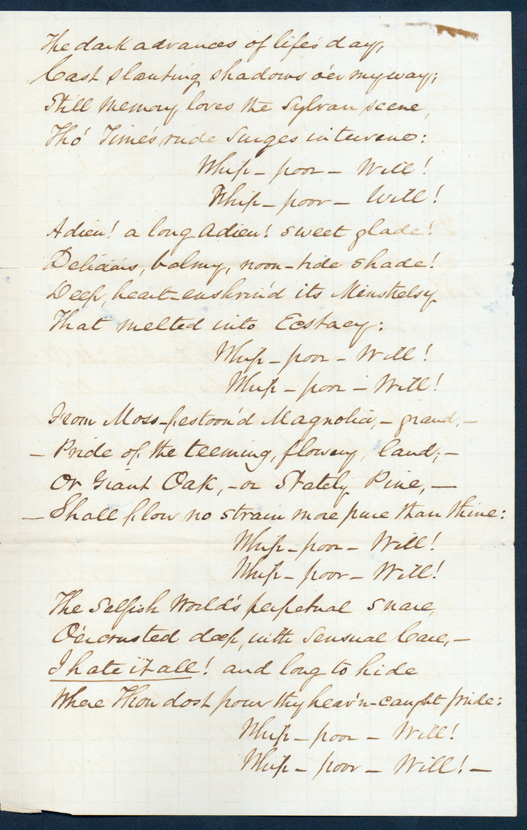 The dark advances of life's day,
Cast slanting shadows o'er my way;
Still Memory loves the Sylvan scene,
Tho' Time's rude Surges intervene:
Whip - poor - Will!
Whip - poor - Will!
Adieu! a long Adieu! sweet glade!
Delicious, balmy, noon-tide shade!
Deep, heart-enshrin'd its Minstrelsy
That melted into Ecstacy:
Whip - poor - Will!
Whip - poor - Will!
From Moss-festoon'd Magnolia, - grand, -
- Pride of the teeming, flowery, land; -
Or Giant Oak, - or Stately Pine, -
- Shall flow no strain more pure than thine:
Whip - poor - Will!
Whip - poor - Will!
The Selfish World's perpetual snare,
O'ercrusted deep, with Sensual Care, -
I hate it all! and long to hide
Where Thou dost pour thy heav'n-caught pride:
Whip - poor - Will!
Whip - poor - Will! -